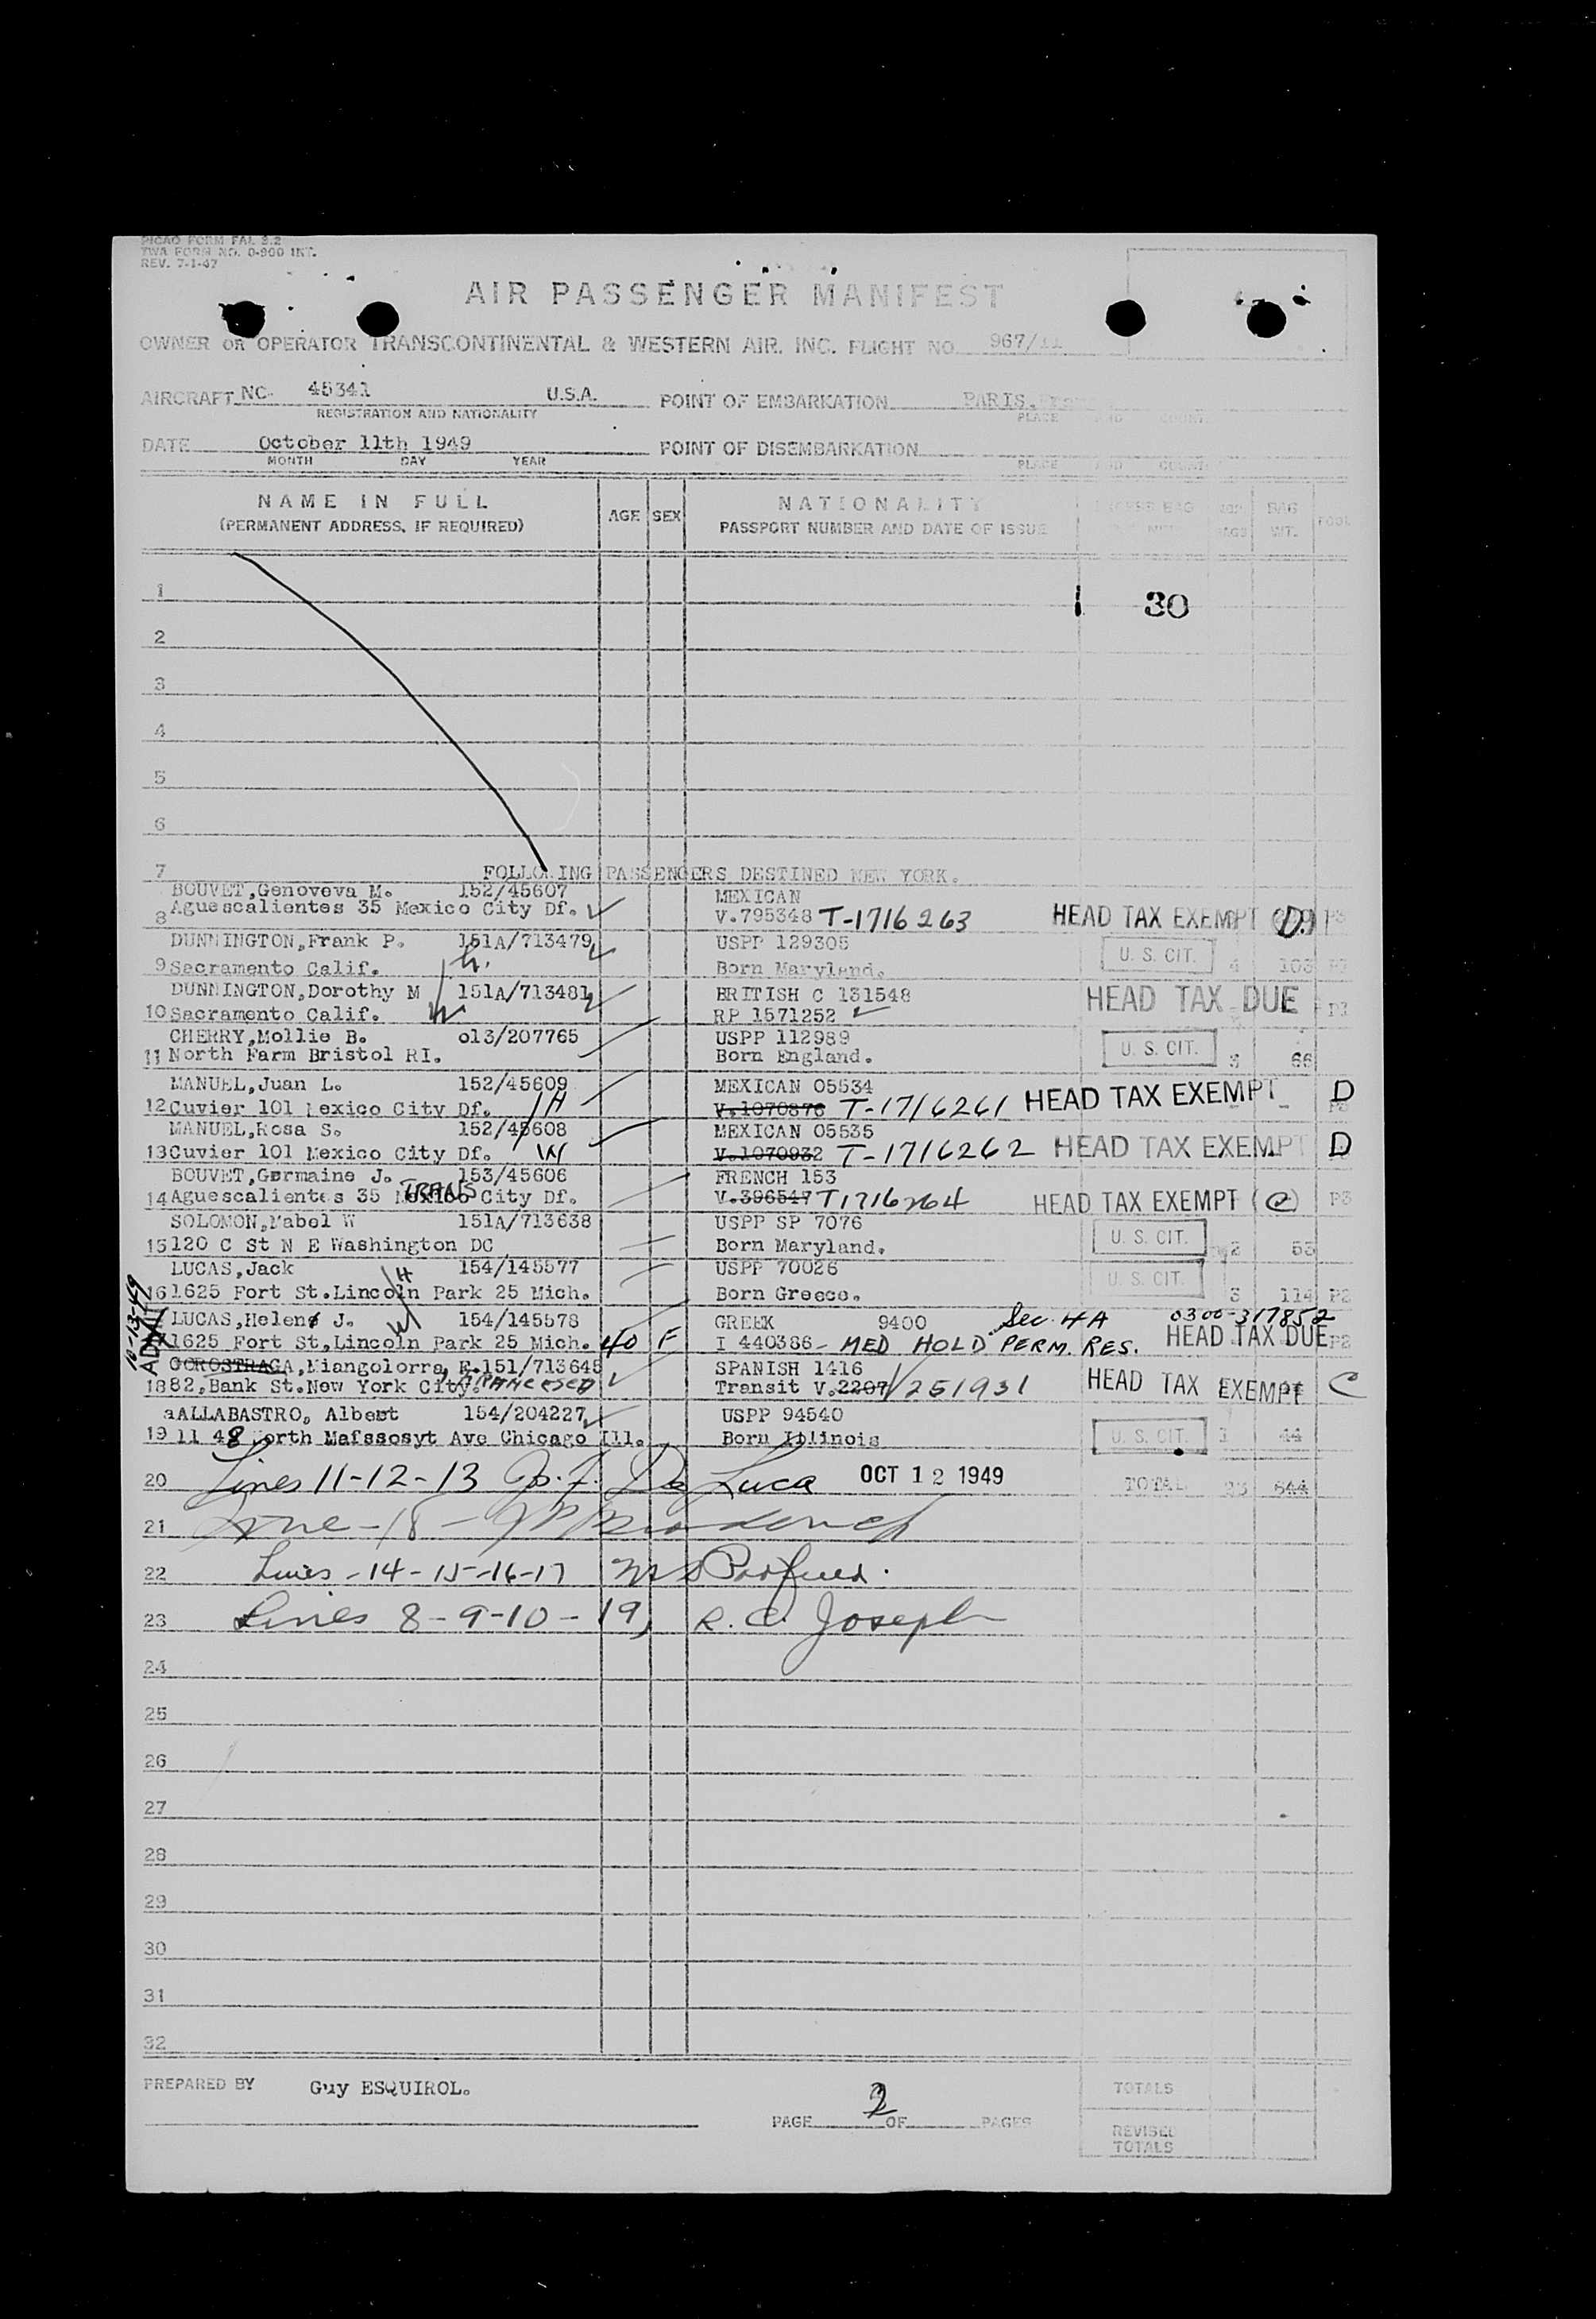 PICAO FORM FAL 3.2
TWA FORM NO. 0-900 INT.
REV. 7-1-47
AIR PASSENGER MANIFEST
OWNER OR OPERATOR TRANSCONTINENTAL & WESTERN AIR, INC. FLIGHT NO. 967/11
AIRCRAFT NC- 45341 U.S.A. POINT OF EMBARKATION PARIS,
REGISTRATION AND NATIONALITY PLACE AND COUNT
DATE October 11th 1949 POINT OF DISEMBARKATION
MONTH DAY YEAR PLACE AND COUNT
NAME IN FULL AGE SEX NATIONALITY BAG BAG
(PERMANENT ADDRESS, IF REQUIRED) PASSPORT NUMBER AND DATE OF ISSUE BAGS WT.
1 30
2
3
4
5
6
7 FOLLOWING PASSENGERS DESTINED NEW YORK.
BOUVET,Genoveva M. 152/45607 MEXICAN
8 Aguescalientes 35 Mexico City Df. V.795348 T-1716263 HEAD TAX EXEMPT (D) P3
DUNNINGTON,Frank P. 151A/713479 USPP 129305 U. S. CIT.
9 Sacramento Calif. H. Born Maryland. 4 103
DUNNINGTON,Dorothy M 151A/713481 BRITISH C 131548 HEAD TAX DUE
10 Sacramento Calif. W RP 1571252 P3
CHERRY,Mollie B. o13/207765 USPP 112989 U. S. CIT.
11 North Farm Bristol RI. Born England. 3 66
MANUEL,Juan L. 152/45609 MEXICAN 05534
12 Cuvier 101 Mexico City Df. H V.1070876 T-1716261 HEAD TAX EXEMPT D
MANUEL,Rosa S. 152/45608 MEXICAN 05535
13 Cuvier 101 Mexico City Df. W V.1070932 T-1716262 HEAD TAX EXEMPT D
BOUVET,Germaine J. 153/45606 FRENCH 153
14 Aguescalientes 35 Mexico City Df. TRANS V.396547 T1716264 HEAD TAX EXEMPT (C) P3
SOLOMON,Mabel W 151A/713638 USPP SP 7076 U. S. CIT.
15 120 C St N E Washington DC Born Maryland. 2 53
LUCAS,Jack 154/145577 H USPP 70026 U. S. CIT.
16 1625 Fort St.Lincoln Park 25 Mich. Born Greece. 3 114 P2
10-13-49 ADMIT
LUCAS,Helene J. 154/145578 W GREEK 9400 Sec. 4A 0300-317852
1625 Fort St,Lincoln Park 25 Mich. 40 F I 440386 - MED HOLD PERM. RES. HEAD TAX DUE P2
GOROSTRAGA,Miangolorra, F.151/713645 SPANISH 1416
18 82,Bank St.New York City. Transit V.2207 / 251931 HEAD TAX EXEMPT C
aALLABASTRO, Albert 154/204227 USPP 94540 U. S. CIT.
19 11 48 North Mafssosyt Ave Chicago Ill. Born Illinois 1 44
20 Lines 11-12-13 De Luca OCT 12 1949 TOTAL 23 644
21 Line - 18 -
22 Lines - 14 - 15 - 16 - 17
23 Lines 8 - 9 - 10 - 19, R. C. Joseph
24
25
26
27
28
29
30
31
32
PREPARED BY Guy ESQUIROL. TOTALS
PAGE 2 OF PAGES
REVISED TOTALS